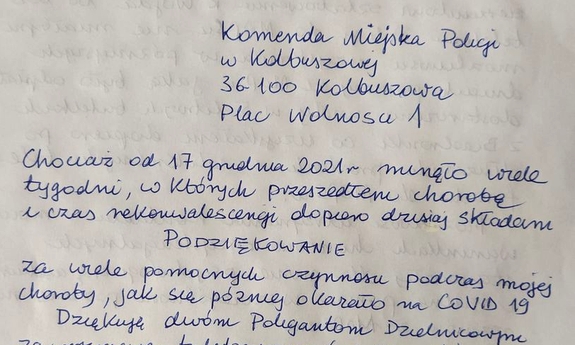 Komenda Miejska Policji
w Kolbuszowej
36-100 Kolbuszowa
Plac Wolności 1
Chociaż od 17 grudnia 2021r minęło wiele
tygodni, w których przeszedłem chorobę
i czas rekonwalescencji dopiero dzisiaj składam
PODZIĘKOWANIE
za wiele pomocnych czynności podczas mojej
choroby, jak się później okazało na COVID 19
Dziękuję dwóm Policjantom Dzielnicowym